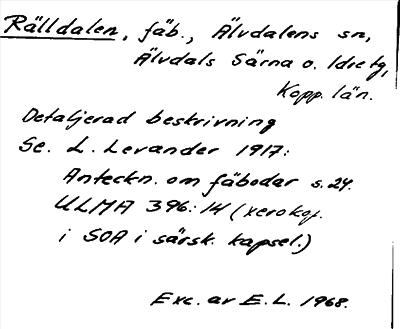 Rälldalen, fäb., Älvdalens sn,
Älvdals Särna o. Idre tg,
Kopp. län.
Detaljerad beskrivning
Se. L. Levander 1917:
Anteckn. om fäbodar s. 24.
ULMA 396:14 (xerokop.
i SOA i särsk. kapsel.)
Exc. av E.L. 1968.